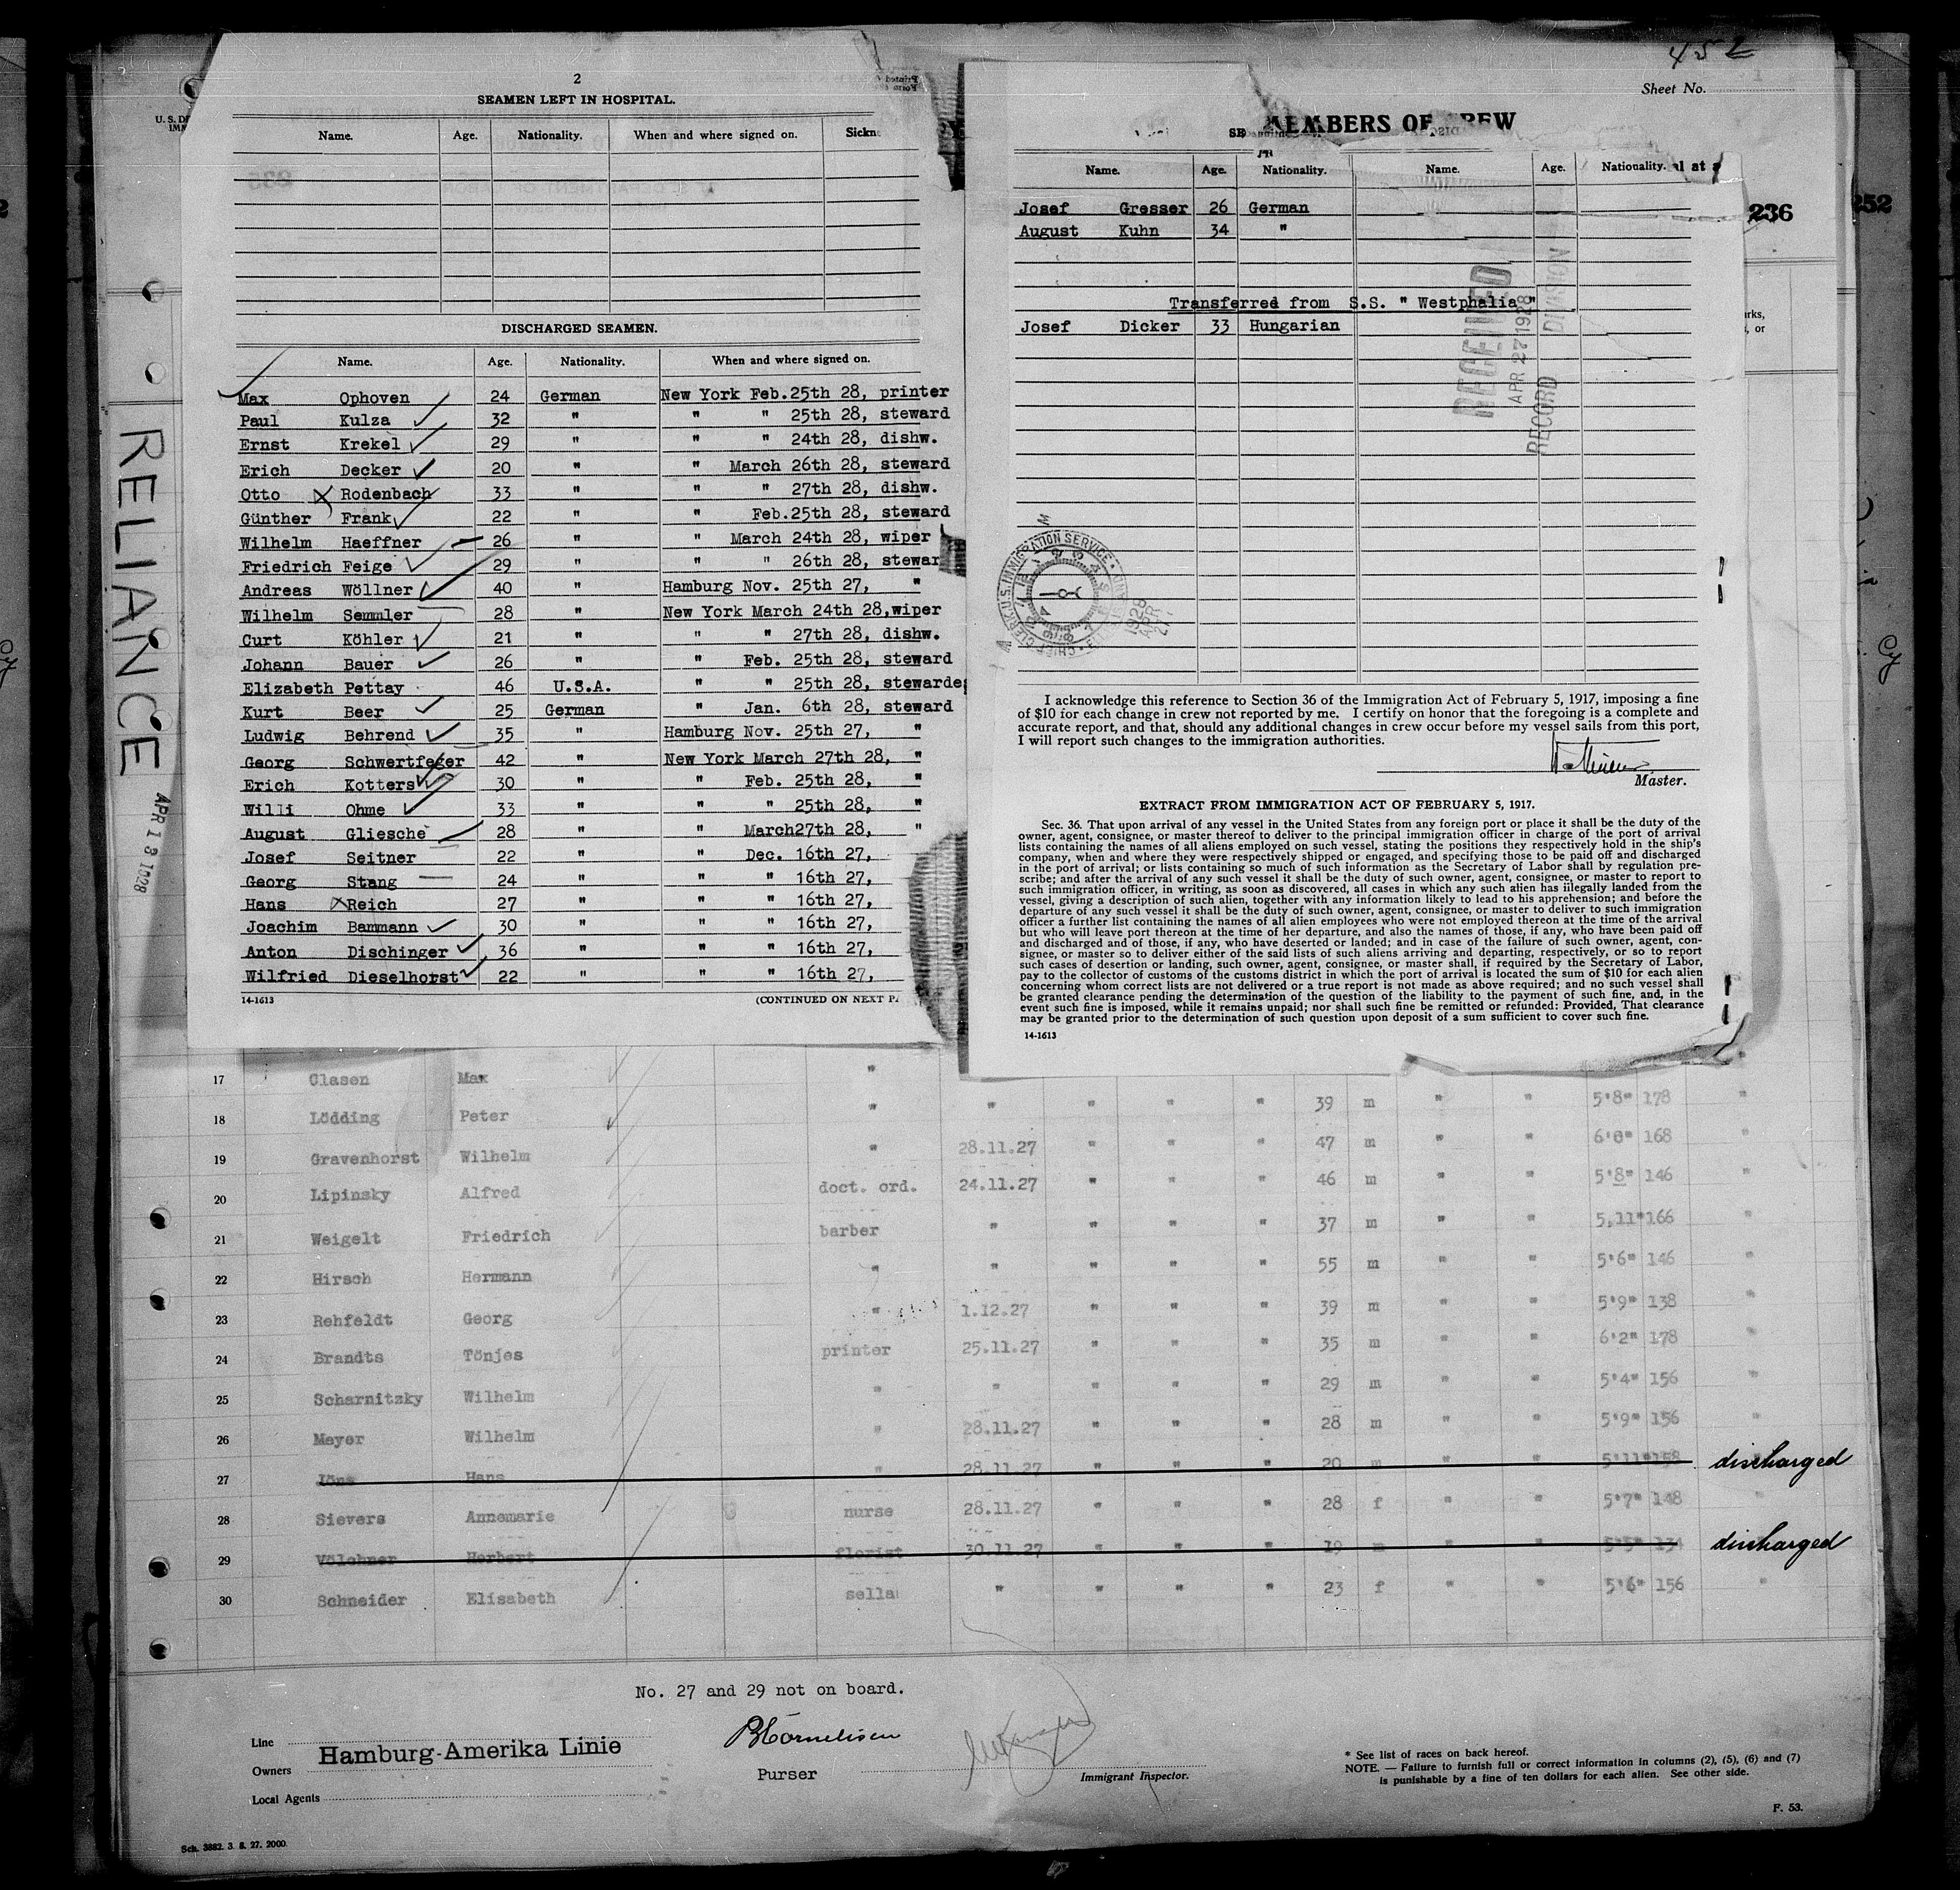 2
SEAMEN LEFT IN HOSPITAL.
Name. Age. Nationality. When and where signed on.
DISCHARGED SEAMEN.
Name. Age. Nationality. When and where signed on.
Max Ophoven 24 German New York Feb.25th 28, printer
Paul Kulza 32 " " " 25th 28, steward
Ernst Krekel 29 " " " 24th 28, dishw.
Erich Decker 20 " " March 26th 28, steward
Otto Rodenbach 33 " " " 27th 28, dishw.
Günther Frank 22 " " Feb.25th 28, steward
Wilhelm Haeffner 26 " " March 24th 28, wiper
Friedrich Feige 29 " " " 26th 28, stewar
Andreas Wöllner 40 " Hamburg Nov. 25th 27, "
Wilhelm Semmler 28 " New York March 24th 28,wiper
Curt Köhler 21 " " " 27th 28, dishw.
Johann Bauer 26 " " Feb. 25th 28, steward
Elizabeth Pettay 46 U.S.A. " " 25th 28, stewarde
Kurt Beer 25 German " Jan. 6th 28, steward
Ludwig Behrend 35 " Hamburg Nov. 25th 27, "
Georg Schwertfeger 42 " New York March 27th 28, "
Erich Kotters 30 " " Feb. 25th 28, "
Willi Ohme 33 " " " 25th 28, "
August Gliesche 28 " " March27th 28, "
Josef Seitner 22 " " Dec. 16th 27,
Georg Stang 24 " " " 16th 27,
Hans Reich 27 " " " 16th 27,
Joachim Bammann 30 " " " 16th 27,
Anton Dischinger 36 " " " 16th 27,
Wilfried Dieselhorst 22 " " " 16th 27,
14-1613 (CONTINUED ON NEXT
RELIANCE
APR 13 1928
452
Sheet No.
MEMBERS OF CREW
Name. Age. Nationality. Name. Age. Nationality.
236
252
Josef Gresser 26 German
August Kuhn 34 "
Transferred from S.S. " Westphalia "
Josef Dicker 33 Hungarian
RECEIVED
APR 27 1928
RECORD DIVISION
U.S. IMMIGRATION SERVICE
1928
APR
27
I acknowledge this reference to Section 36 of the Immigration Act of February 5, 1917, imposing a fine
of $10 for each change in crew not reported by me. I certify on honor that the foregoing is a complete and
accurate report, and that, should any additional changes in crew occur before my vessel sails from this port,
I will report such changes to the immigration authorities.
Master.
EXTRACT FROM IMMIGRATION ACT OF FEBRUARY 5, 1917.
Sec. 36. That upon arrival of any vessel in the United States from any foreign port or place it shall be the duty of the
owner, agent, consignee, or master thereof to deliver to the principal immigration officer in charge of the port of arrival
lists containing the names of all aliens employed on such vessel, stating the positions they respectively hold in the ship's
company, when and where they were respectively shipped or engaged, and specifying those to be paid off and discharged
in the port of arrival; or lists containing so much of such information as the Secretary of Labor shall by regulation pre-
scribe; and after the arrival of any such vessel it shall be the duty of such owner, agent, consignee, or master to report to
such immigration officer, in writing, as soon as discovered, all cases in which any such alien has illegally landed from the
vessel, giving a description of such alien, together with any information likely to lead to his apprehension; and before the
departure of any such vessel it shall be the duty of such owner, agent, consignee, or master to deliver to such immigration
officer a further list containing the names of all alien employees who were not employed thereon at the time of the arrival
but who will leave port thereon at the time of her departure, and also the names of those, if any, who have been paid off
and discharged and of those, if any, who have deserted or landed; and in case of the failure of such owner, agent, con-
signee, or master so to deliver either of the said lists of such aliens arriving and departing, respectively, or so to report
such cases of desertion or landing, such owner, agent, consignee, or master shall, if required by the Secretary of Labor,
pay to the collector of customs of the customs district in which the port of arrival is located the sum of $10 for each alien
concerning whom correct lists are not delivered or a true report is not made as above required; and no such vessel shall
be granted clearance pending the determination of the question of the liability to the payment of such fine, and, in the
event such fine is imposed, while it remains unpaid; nor shall such fine be remitted or refunded: Provided, That clearance
may be granted prior to the determination of such question upon deposit of a sum sufficient to cover such fine.
14-1613
17 Clasen Max "
18 Lödding Peter " " " " " 39 m " " 5'8" 178 "
19 Gravenhorst Wilhelm " 28.11.27 " " " 47 m " " 6'0" 168 "
20 Lipinsky Alfred doct. ord. 24.11.27 " " " 46 m " " 5'8" 146 "
21 Weigelt Friedrich barber " " " " 37 m " " 5,11" 166 "
22 Hirsch Hermann " " " " " 55 m " " 5'6" 146 "
23 Rehfeldt Georg " 1.12.27 " " " 39 m " " 5'9" 138 "
24 Brandts Tönjes printer 25.11.27 " " " 35 m " " 6'2" 178 "
25 Scharnitzky Wilhelm " " " " " 29 m " " 5'4" 156 "
26 Meyer Wilhelm " 28.11.27 " " " 28 m " " 5'9" 156 "
27 Jöns Hans " 28.11.27 " " " 20 m " " 5'11" 158 discharged
28 Sievers Annemarie nurse 28.11.27 " " " 28 f " " 5'7" 148 "
29 Völchner Herbert florist 30.11.27 " " " 19 m " " 5'5" 134 discharged
30 Schneider Elisabeth sella " " " " 23 f " " 5'6" 156 "
No. 27 and 29 not on board.
Line
Owners Hamburg-Amerika Linie
Local Agents
BCornelisen
Purser
Immigrant Inspector.
* See list of races on back hereof.
NOTE. — Failure to furnish full or correct information in columns (2), (5), (6) and (7)
is punishable by a fine of ten dollars for each alien. See other side.
F. 53.
Sch. 3882. 3. 8. 27. 2000.